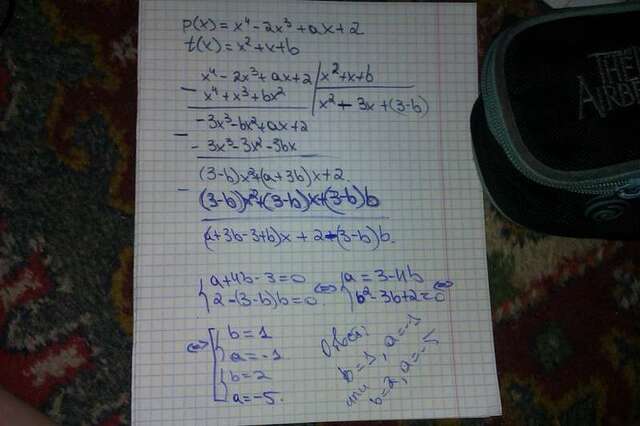 p(x) = x⁴ - 2x³ + ax + 2
t(x) = x² + x + b
x⁴ - 2x³ + ax + 2 | x² + x + b
- x⁴ + x³ + bx² | x² - 3x + (3-b)
-3x³ - bx² + ax + 2
- -3x³ - 3x² - 3bx
(3-b)x² + (a+3b)x + 2
- (3-b)x² + (3-b)x + (3-b)b
(a+3b-3+b)x + 2 - (3-b)b.
{ a + 4b - 3 = 0 ⇔ { a = 3 - 4b
2 - (3-b)b = 0 b² - 3b + 2 = 0 ⇔
⇔ [ { b = 1
a = -1
{ b = 2
a = -5.
Ответ:
b = 1, a = -1
или
b = 2, a = -5
THE
AIRB